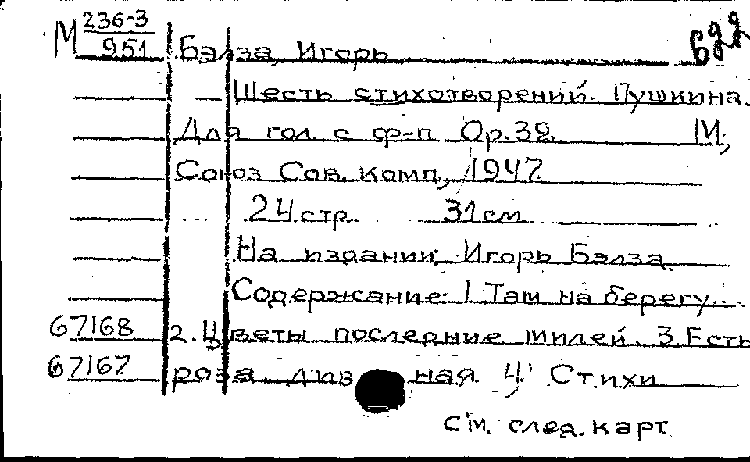 М 236-3
951 Бэлза, Игорь
Шесть стихотворений Пушкина.
Для гол. с ф-п Ор.38. М,
Союз Сов. комп., 1947
24 стр. 31 см
На издании: Игорь Бэлза
Содержание: 1. Там на берегу...
67168 2. Цветы последние милей. 3. Есть
67167 роза дивная 4. Стихи
См. след. карт.